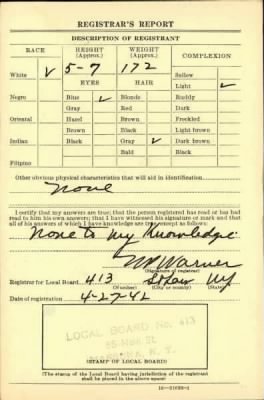 REGISTRAR'S REPORT
DESCRIPTION OF REGISTRANT
RACE HEIGHT (Approx.) WEIGHT (Approx.) COMPLEXION
White ✓ 5-7 172 Sallow
EYES HAIR Light ✓
Negro Blue ✓ Blonde Ruddy
Gray Red Dark
Oriental Hazel Brown Freckled
Brown Black Light brown
Indian Black Gray ✓ Dark brown
Bald Black
Filipino
Other obvious physical characteristics that will aid in identification
None
I certify that my answers are true; that the person registered has read or has had
read to him his own answers; that I have witnessed his signature or mark and that
all of his answers of which I have knowledge are true, except as follows:
None to my Knowledge
Warner
(Signature of registrar)
Registrar for Local Board 413 NY
(Number) (City or county) (State)
Date of registration 4-27-42
LOCAL BOARD No. 413
55 Main St.
N. Y.
(STAMP OF LOCAL BOARD)
(The stamp of the Local Board having jurisdiction of the registrant
shall be placed in the above space)